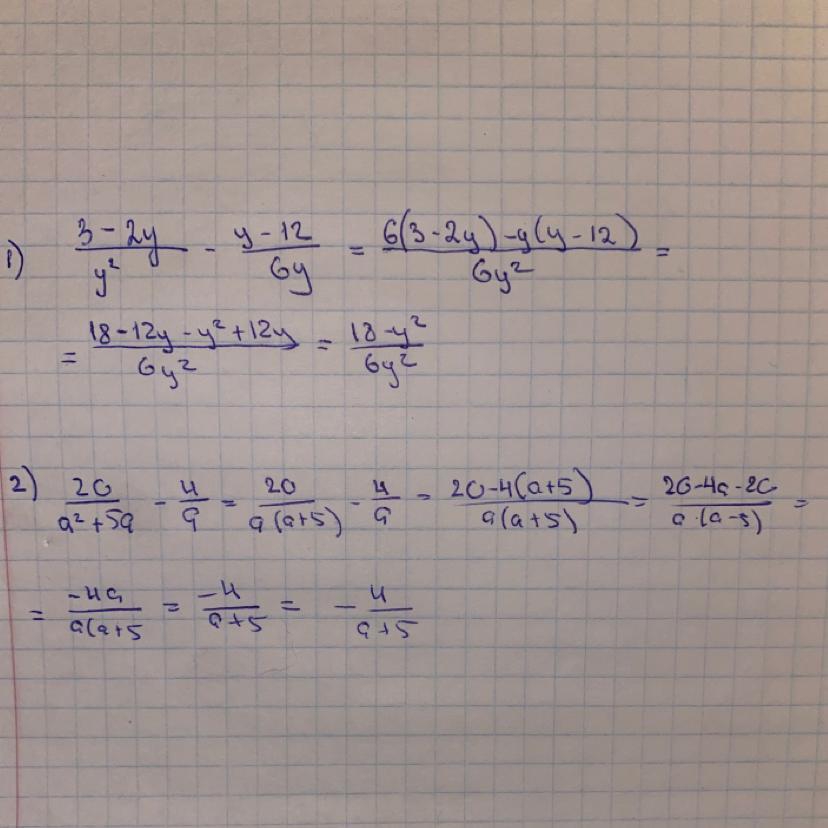 1) (3 - 2y)/y² - (y - 12)/6y = (6(3 - 2y) - y(y - 12))/6y² =
= (18 - 12y - y² + 12y)/6y² = (18 - y²)/6y²
2) 20/(a² + 5a) - 4/a = 20/(a(a+5)) - 4/a = (20 - 4(a+5))/(a(a+5)) = (20 - 4a - 20)/(a·(a-5)) =
= -4a/(a(a+5 = -4/(a+5) = - 4/(a+5)